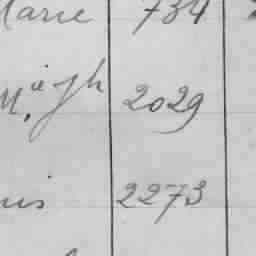 Marie 734
M.ie Jph 2029
nis 2273